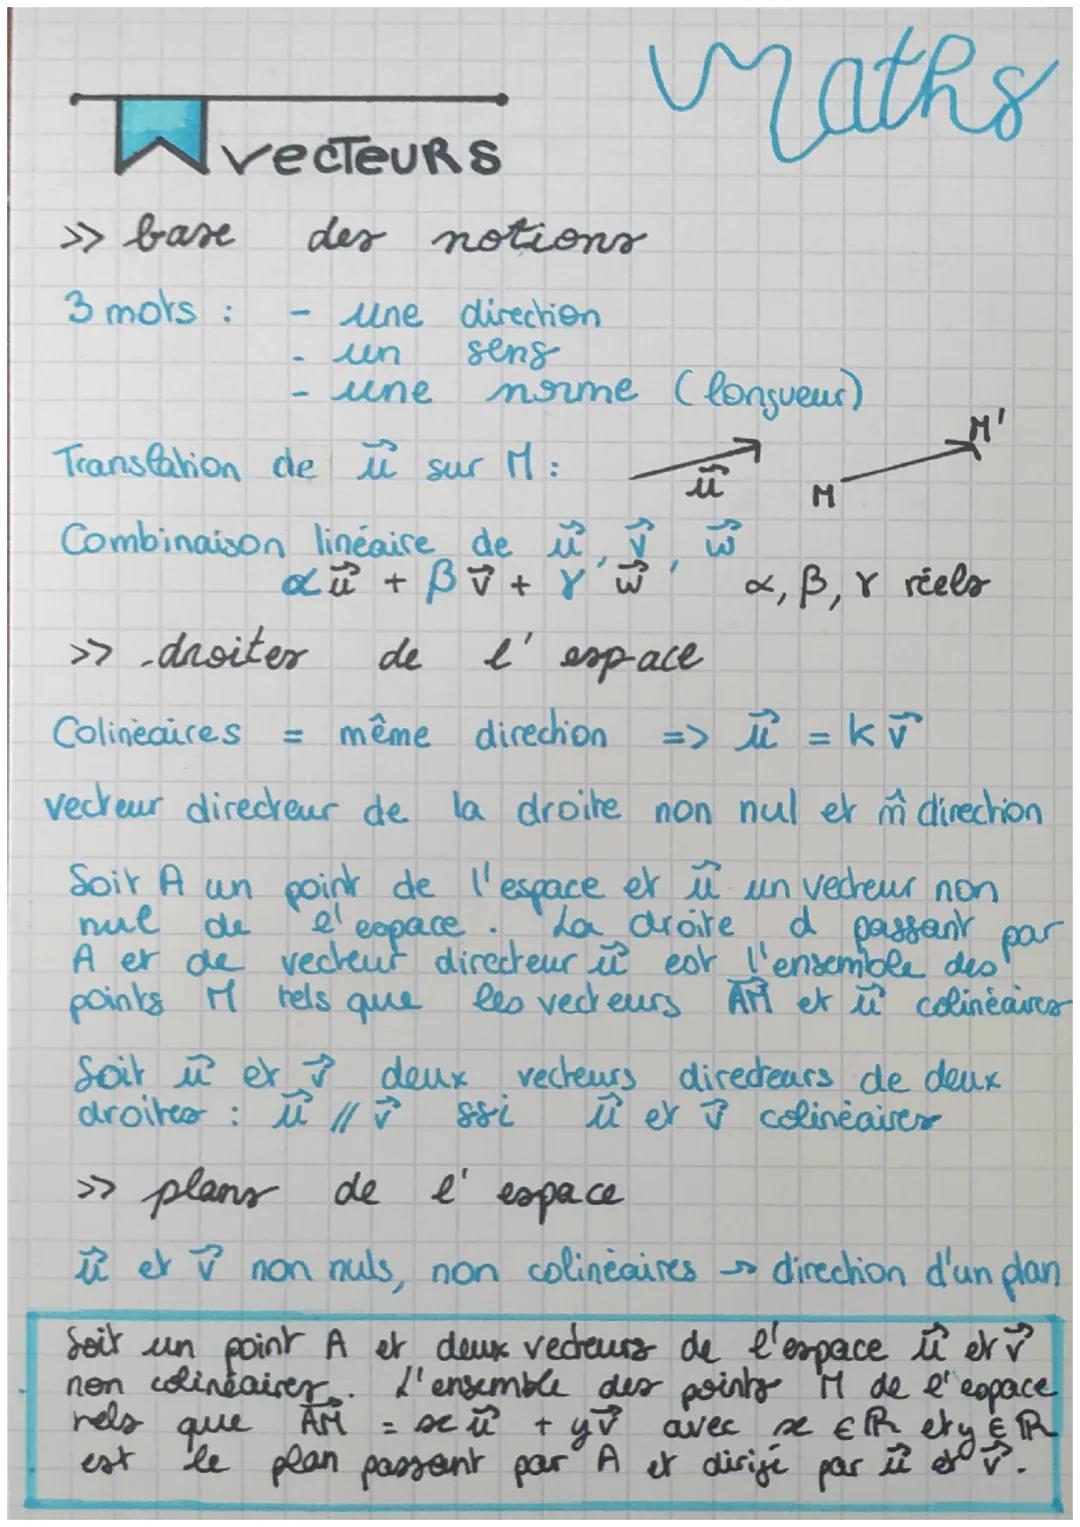 Maths
VECTEURS
>> base des notions
3 mots : - une direction
- un sens
- une norme (longueur)
Translation de u⃗ sur M : u⃗ M M'
Combinaison linéaire de u⃗, v⃗, w⃗
αu⃗ + βv⃗ + γw⃗, α, β, γ réels
>> droites de l'espace
Colinéaires = même direction => u⃗ = kv⃗
vecteur directeur de la droite non nul et m̂ direction
Soit A un point de l'espace et u⃗ un vecteur non
nul de l'espace. La droite d passant par
A et de vecteur directeur u⃗ est l'ensemble des
points M tels que les vecteurs AM⃗ et u⃗ colinéaires
Soit u⃗ et v⃗ deux vecteurs directeurs de deux
droites : u⃗ // v⃗ ssi u⃗ et v⃗ colinéaires
>> plans de l'espace
u⃗ et v⃗ non nuls, non colinéaires → direction d'un plan
Soit un point A et deux vecteurs de l'espace u⃗ et v⃗
non colinéaires. L'ensemble des points M de l'espace
tels que AM⃗ = xu⃗ + yv⃗ avec x ∈ ℝ et y ∈ ℝ
est le plan passant par A et dirigé par u⃗ et v⃗.